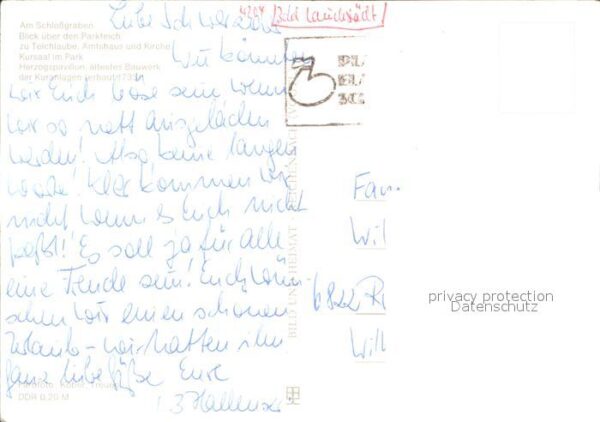 4204 Bad Lauchstädt
Am Schloßgraben
Blick über den Parkteich
zu Teichlaube, Amtshaus und Kirche
Kursaal im Park
Herzogspavillon, ältestes Bauwerk
der Kuranlagen (erbaut 1735)
Liebe
Wie könnten
wir Euch böse sein wenn
wir so nett eingeladen
werden! Also keine langen
Worte! Klar kommen wir
nicht wenn es Euch nicht
paßt! Es soll ja für alle
eine Freude sein! Euch wün-
schen wir einen schönen
Urlaub - wir hatten ihn
ganz liebe Grüße Eure
3 Hallenser
DDR 0,20 M
BILD UND HEIMAT
Fam.
Wil
6822
Wil
privacy protection
Datenschutz